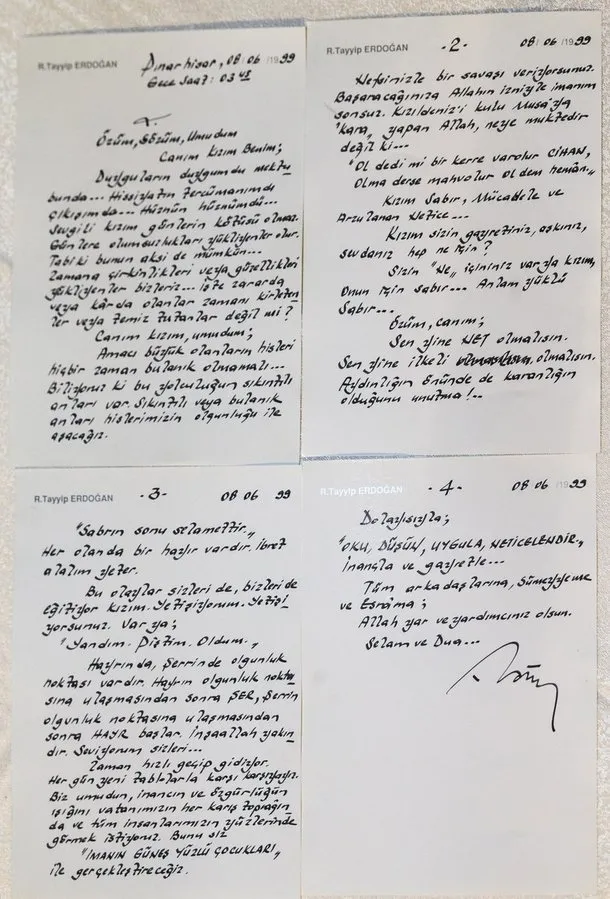 R.Tayyip ERDOĞAN
Pınarhisar, 08.06/1999
Gece Saat: 03 45
Özüm, Sözüm, Umudum
Canım Kızım Benim;
Duyguların duygumdu mektu
bunda... Hissiyatın tercümanımdı
çıkışımda... Hüznün hüznümdü...
Sevgili kızım günlerin kötüsü olmaz.
Günlere olumsuzlukları yükliyenler olur.
Tabi ki bunun aksi de mümkün...
Zamana çirkinlikleri veya güzellikleri
yükliyenler bizleriz... İşte zararda
veya kârda olanlar zamanı kirleten
ler veya temiz tutanlar değil mi?
Canım kızım, umudum;
Amacı büyük olanların hisleri
hiçbir zaman bulanık olmamalı...
Biliyoruz ki bu yolculuğun sıkıntılı
anları var. Sıkıntılı veya bulanık
anları hislerimizin olgunluğu ile
aşacağız.
R.Tayyip ERDOĞAN -2- 08/06/1999
Nefsinizle bir savaşı veriyorsunuz.
Başaracağınıza Allahın izniyle imanım
sonsuz. Kızıldeniz'i kulu Musa'ya
"kara" yapan Allah, neye muktedir
değil ki...
"Ol dedi mi bir kerre varolur CİHAN,
Olma derse mahvolur ol dem heman"
Kızım Sabır, Mücadele ve
Arzulanan Netice...
Kızım sizin gayretiniz, aşkınız,
sevdanız hep ne için?
Sizin "Ne" içininiz varya kızım,
Onun için sabır... Anlam yüklü
Sabır...
Özüm, canım;
Sen yine NET olmalısın.
Sen yine ilkeli olmalısın.
Aydınlığın önünde de karanlığın
olduğunu unutma!...
R.Tayyip ERDOĞAN -3- 08 06 99
"Sabrın sonu selamettir."
Her olanda bir hayır vardır. İbret
alalım yeter.
Bu olaylar sizleri de, bizleri de
eğitiyor kızım. Yetişiyorum. Yetişi
yorsunuz. Var ya;
"Yandım. Piştim. Oldum."
Hayrında, Şerrinde olgunluk
noktası vardır. Hayrın olgunluk nokta
sına ulaşmasından sonra ŞER, Şerrin
olgunluk noktasına ulaşmasından
sonra HAYR başlar. İnşaallah yakın
dır. Seviyorum sizleri...
Zaman hızlı geçip gidiyor.
Her gün yeni tablolarla karşı karşıyayız.
Biz umudun, inancın ve özgürlüğün
ışığını vatanımızın her karış toprağın
da ve tüm insanlarımızın yüzlerinde
görmek istiyoruz. Bunu siz
"İMANIN GÜNEŞ YÜZLÜ ÇOCUKLARI"
ile gerçekleştireceğiz.
R.Tayyip ERDOĞAN -4- 08 06 1999
Dolayısıyla;
"OKU, DÜŞÜN, UYGULA, NETİCELENDİR"
İnançla ve gayretle...
Tüm arkadaşlarına, Sümeyyeme
ve Esrâma;
Allah yar ve yardımcınız olsun.
Selam ve Dua...